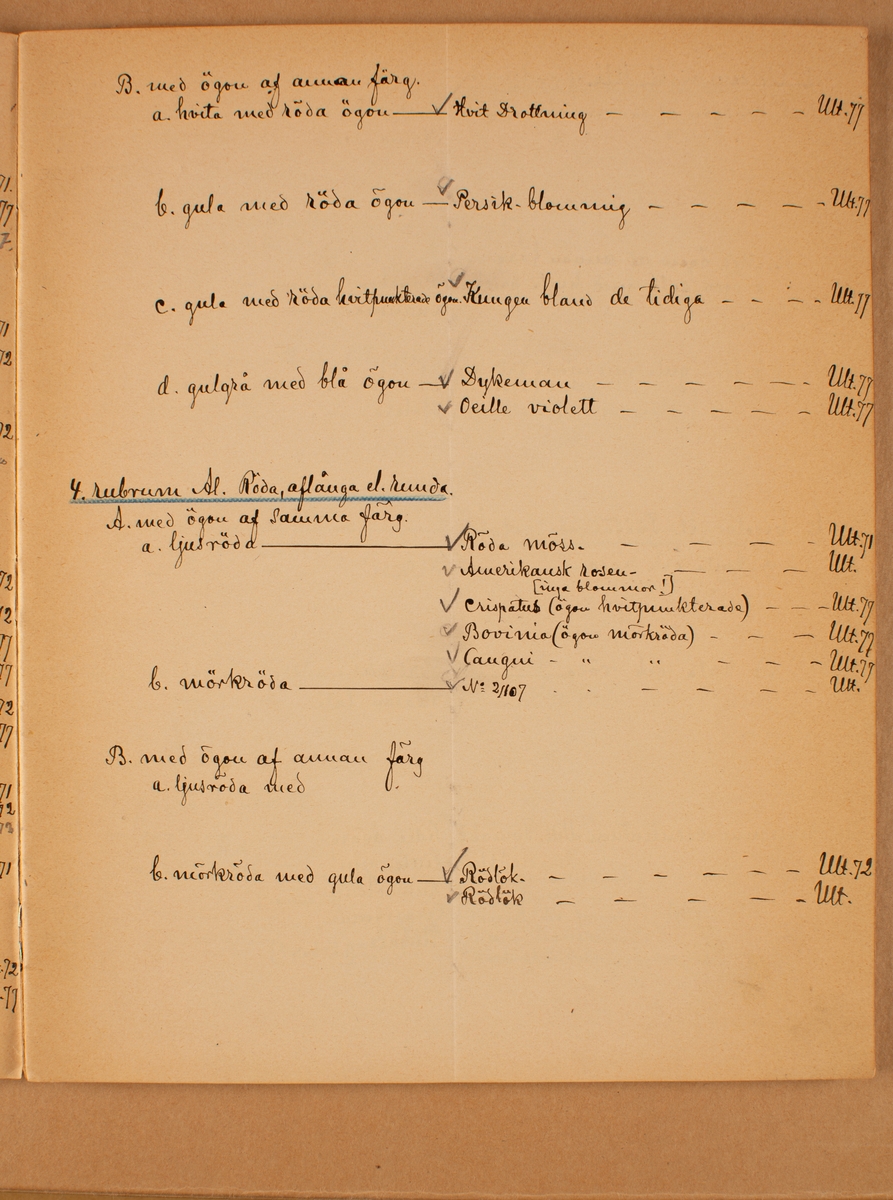 B. med ögon af annan färg.
a. hvita med röda ögon — ✓ Hvit Drottning — — — — Ult. 77
b. gula med röda ögon — ✓ Persik-blommig — — — — Ult. 77
c. gula med röda hvitpunkterade ögon. ✓ Kungen bland de tidiga — — — — Ult. 77
d. gulgrå med blå ögon — ✓ Dykeman — — — — — Ult. 77
✓ Oeille violett — — — — — Ult. 77
4. rubrum Al. Röda, aflånga el. runda.
A. med ögon af samma färg.
a. ljusröda — ✓ Röda möss- — — — — Ult. 71
✓ Amerikansk rosen- — — — — Ult.
[inga blommor!]
✓ Crispatus (ögon hvitpunkterade) — — — Ult. 77
✓ Bovinia (ögon mörkröda) — — — Ult. 77
✓ Caugni - " " — — — — Ult. 77
b. mörkröda — ✓ No 2/107 — — — — Ult.
B. med ögon af annan färg
a. ljusröda med
b. mörkröda med gula ögon — ✓ Rödlök- — — — — — Ult. 72
✓ Rödlök — — — — — Ult.
71.
77
7.
71
72
72
72
12
77
77
72
77
71
72
72
71
-72
-77